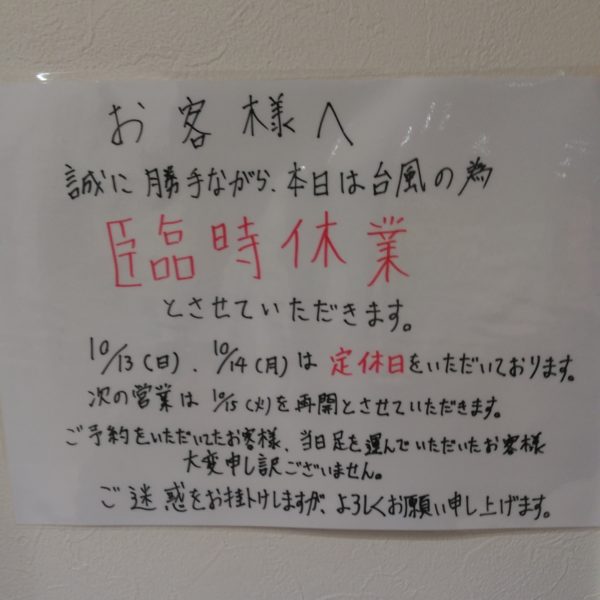 お客様へ
誠に勝手ながら、本日は台風の為
臨時休業
とさせていただきます。
10/13(日)、10/14(月)は定休日をいただいております。
次の営業は10/15(火)を再開とさせていただきます。
ご予約をいただいてたお客様、当日足を運んでいただいたお客様
大変申し訳ございません。
ご迷惑をお掛けしますが、よろしくお願い申し上げます。